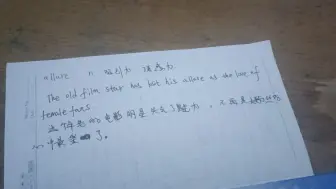 allure n 吸引力 诱惑力
The old film star has lost his allure as the love of
female fans
这个年老的电影明星失去了魅力，不再是
中最爱了。